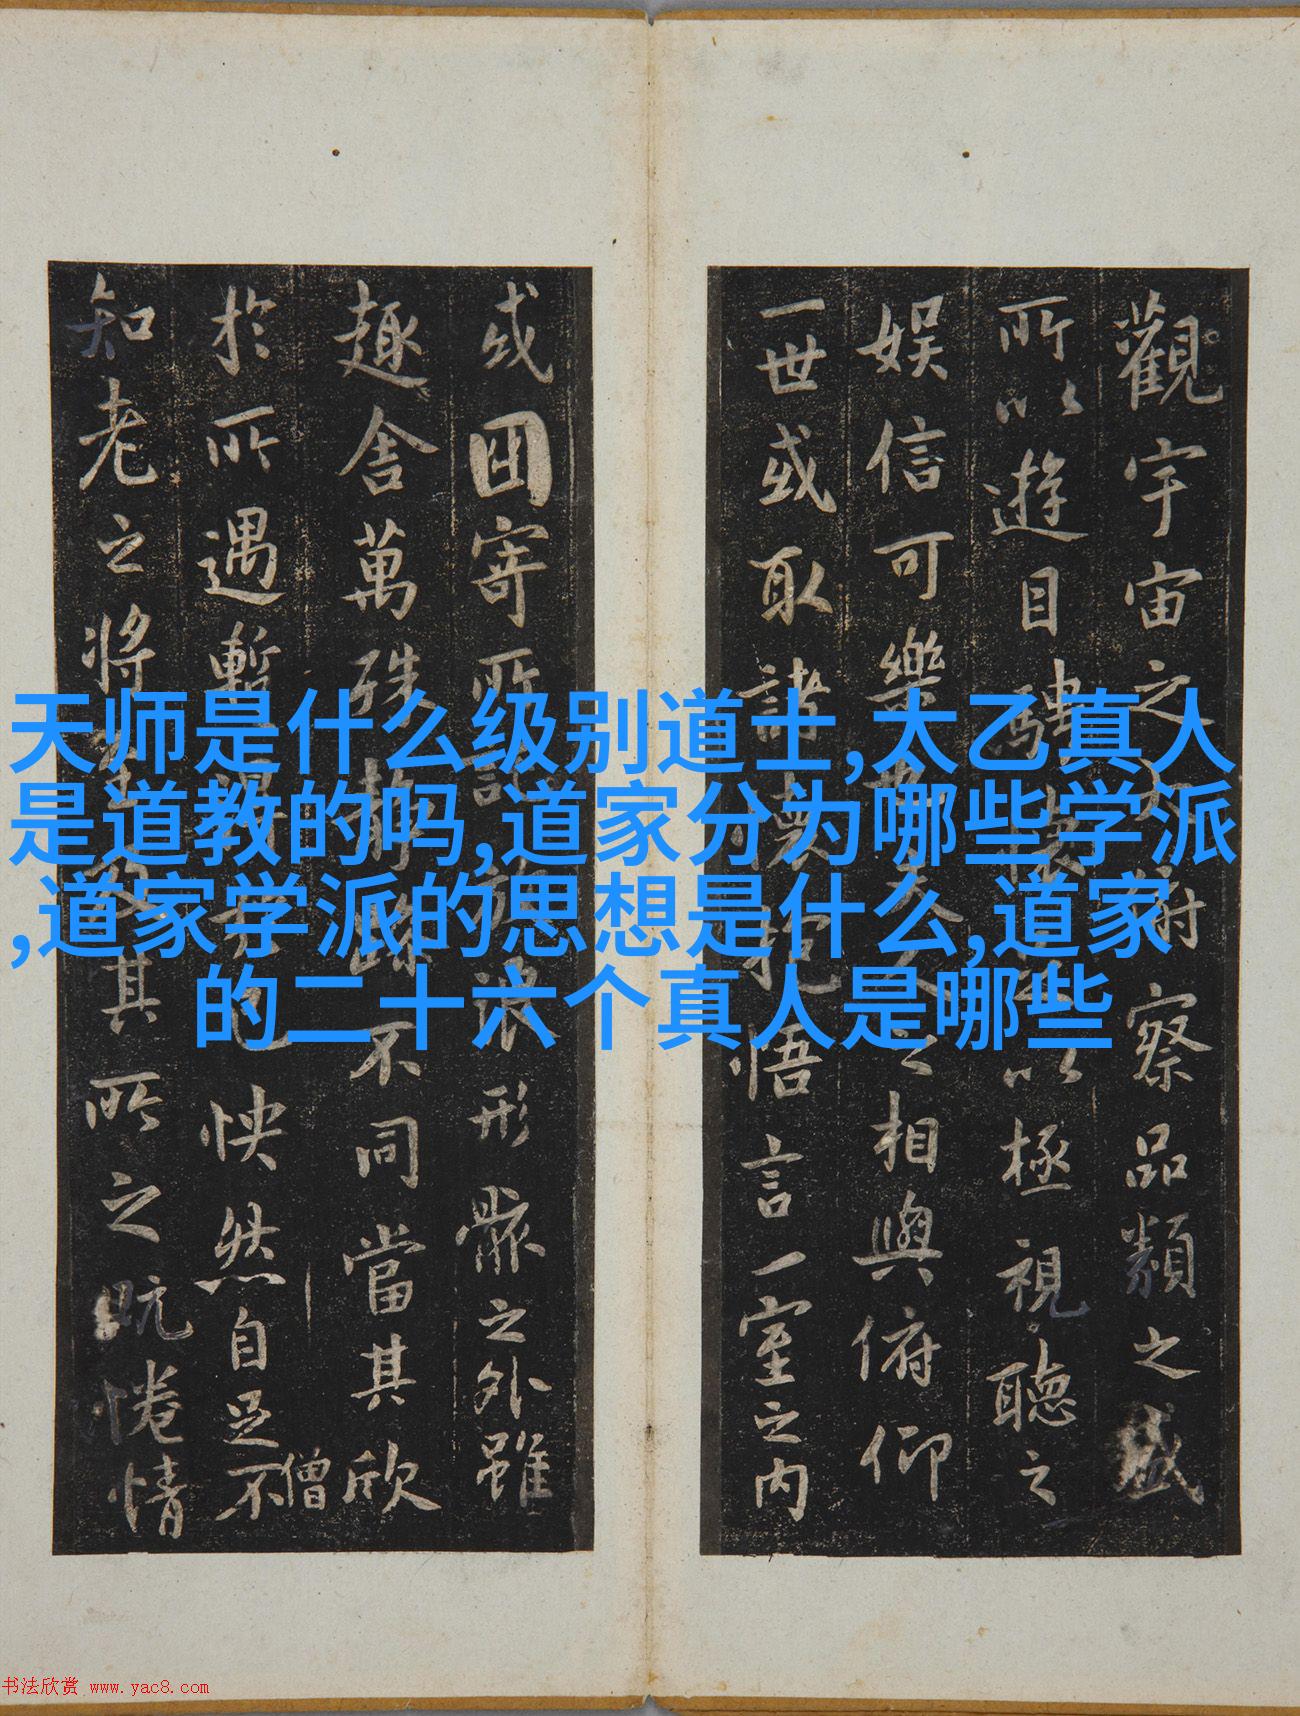 天师是什么级别道士,太乙真人
是道教的吗,道家分为哪些学派
,道家学派的思想是什么,道家
的二十六个真人是哪些
觀宇宙之大俯察品類之盛
所以遊目騁懷足以極視聽之
娛信可樂也夫人之相與俯仰
一世或取諸懷抱悟言一室之內
或因寄所託放浪形骸之外雖
趣舍萬殊靜躁不同當其欣
於所遇暫得於己怏然自足不
僧
知老之將至及其所之既惓情
书法欣赏 www.yac8.com